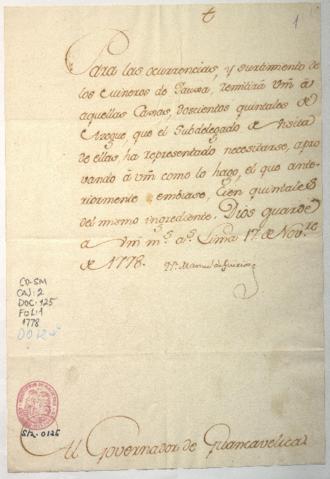 1
Para las ocurrencias, y surtimiento de
los Mineros de Pausa, remitirá Vm á
aquellas Caxas, doscientos quintales de
Azogue que el Subdelegado de Visita
de ellas ha representado necesitarse, apro
vando á Vm como lo hago, el que ante
riormente embiase, Cien quintales
del mismo ingrediente. Dios guarde
a Vm m.s a.s Lima 17 de Nov.re
de 1778.
CO-SM
CAJ: 2
DOC: 125
FOL: 1
1778
512-0125
Al Governador de Guancavelica